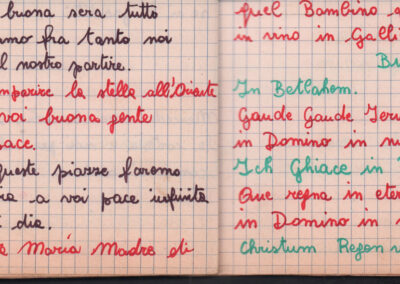 buona sera tutto
amo fra tanto noi
l nostro partire.
mparire la stella all'Oriente
voi buona gente
ace.
queste piazze faremo
a a voi pace infinita
dia.
e Maria Madre di
quel Bambino
in vino in Galli
Bu
In Betlahem.
Gaude Gaude Jeru
in Domino in
Ich Ghiace in
Que regna in eter
in Domino in
Christum Regen